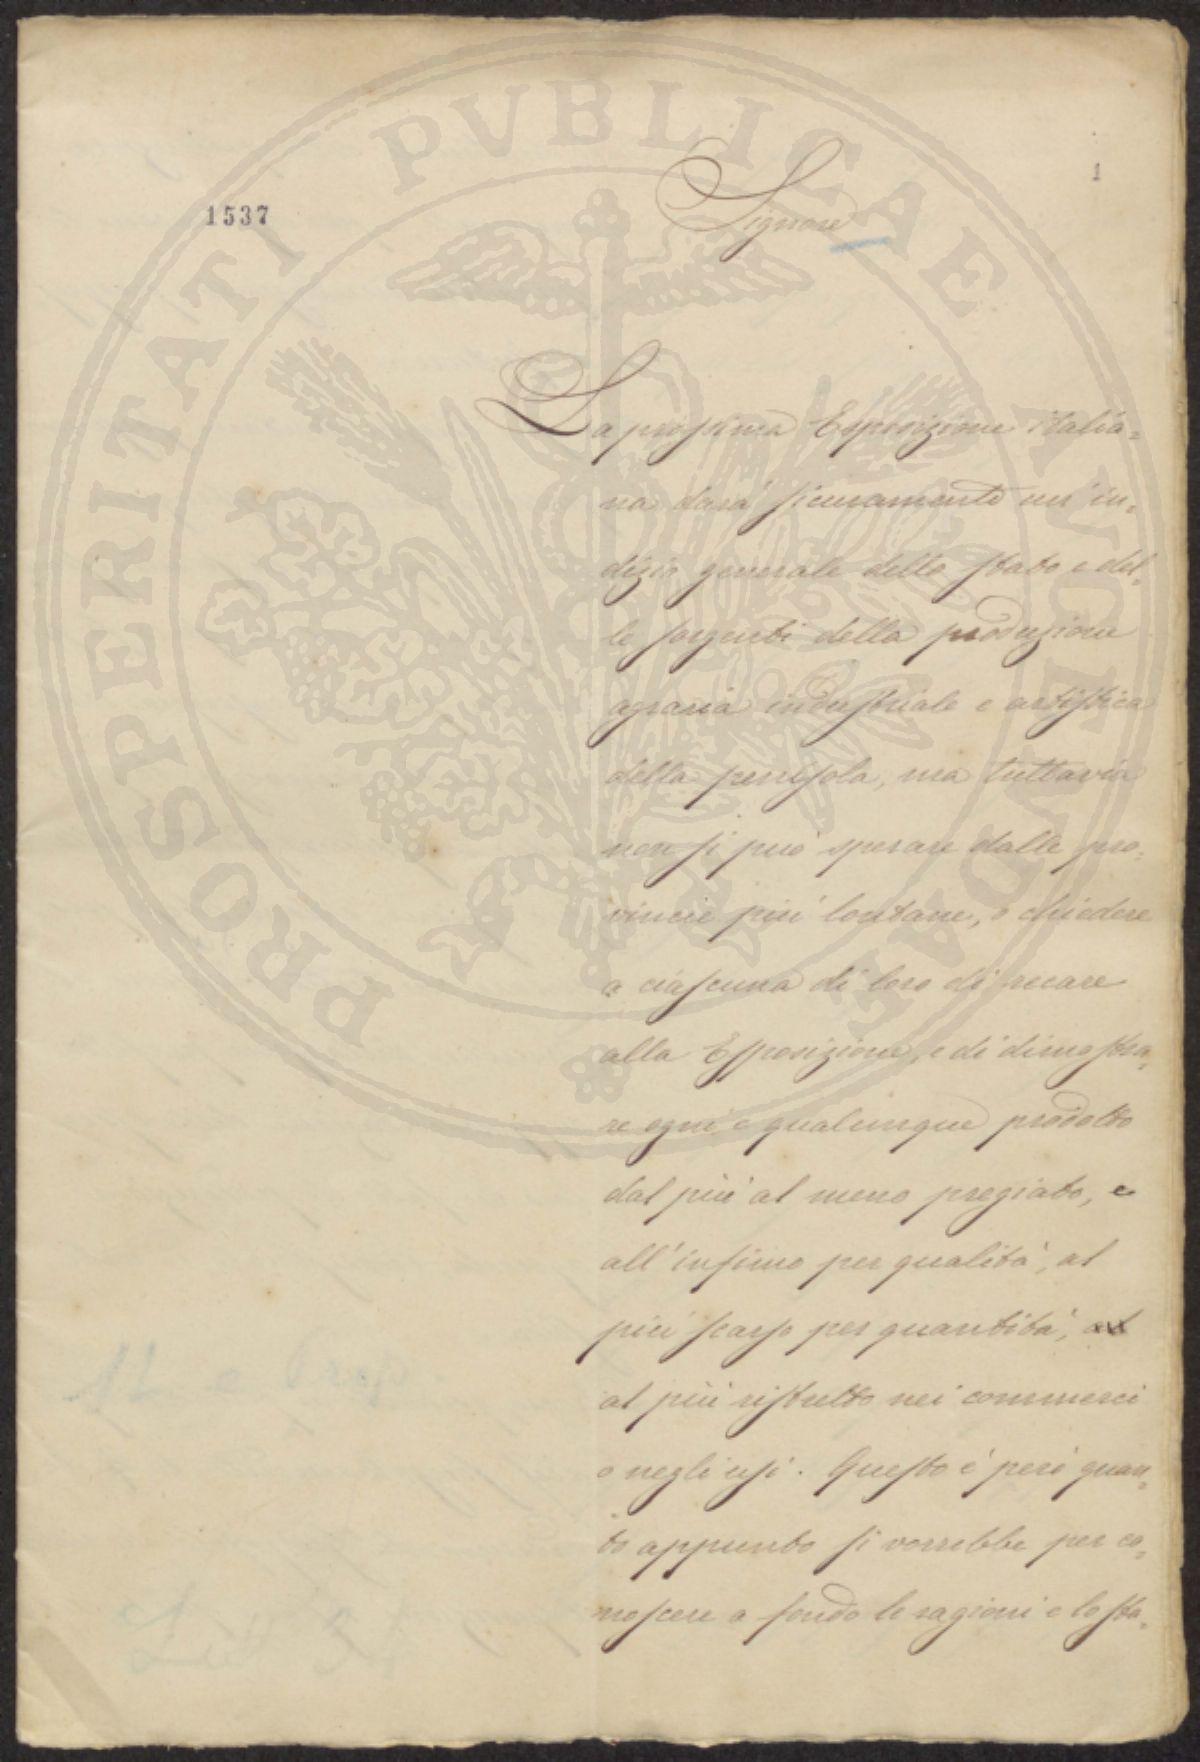 1
1537
Signore
La prossima Esposizione italia=
na darà sicuramente un' in=
dizio generale dello stato e del=
le sorgenti della produzione
agraria industriale e artistica
della penisola, ma tuttavia
non si può sperare dalle pro=
vincie più lontane, o chiedere
a ciascuna di loro di recare
alla Esposizione, e di dimostra=
re ogni e qualunque prodotto
dal più al meno pregiato, e
all'infimo per qualità, al
più scarso per quantità,
al più ristretto nei commerci
o negli usi. Questo è però quan=
to appunto si vorrebbe per co=
noscere a fondo le ragioni e lo sta=
PROSPERITATI PVBLICAE AVGENDAE